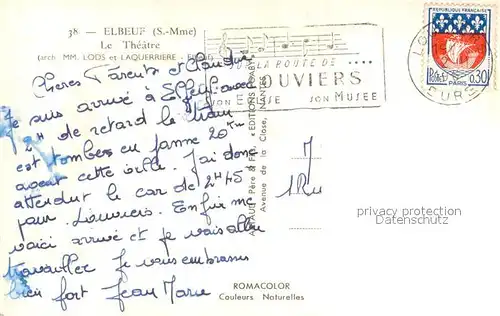 38 — ELBEUF (S.-Mme)
Le Théâtre
(arch MM. LODS et LAQUERRIERE - ELBEUF)
Chers Parents et Claudy
Je suis arrivé à Elbeuf avec
2H de retard le train
est tombés en panne 20 Km
avant cette ville. J'ai donc
attendut le car de 2H45
pour Louviers. Enfin me
voici arrivé et je vais aller
travailler Je vous embrasse
bien fort Jean Marie
SUR LA ROUTE DE ....
LOUVIERS
SON EGLISE SON MUSEE
REPUBLIQUE FRANÇAISE
0,30
PARIS
EURE
ARTAUD Père & Fils, «EDITIONS GABY»
Avenue de la Close, NANTES
privacy protection
DATENSCHUTZ
ROMACOLOR
Couleurs Naturelles